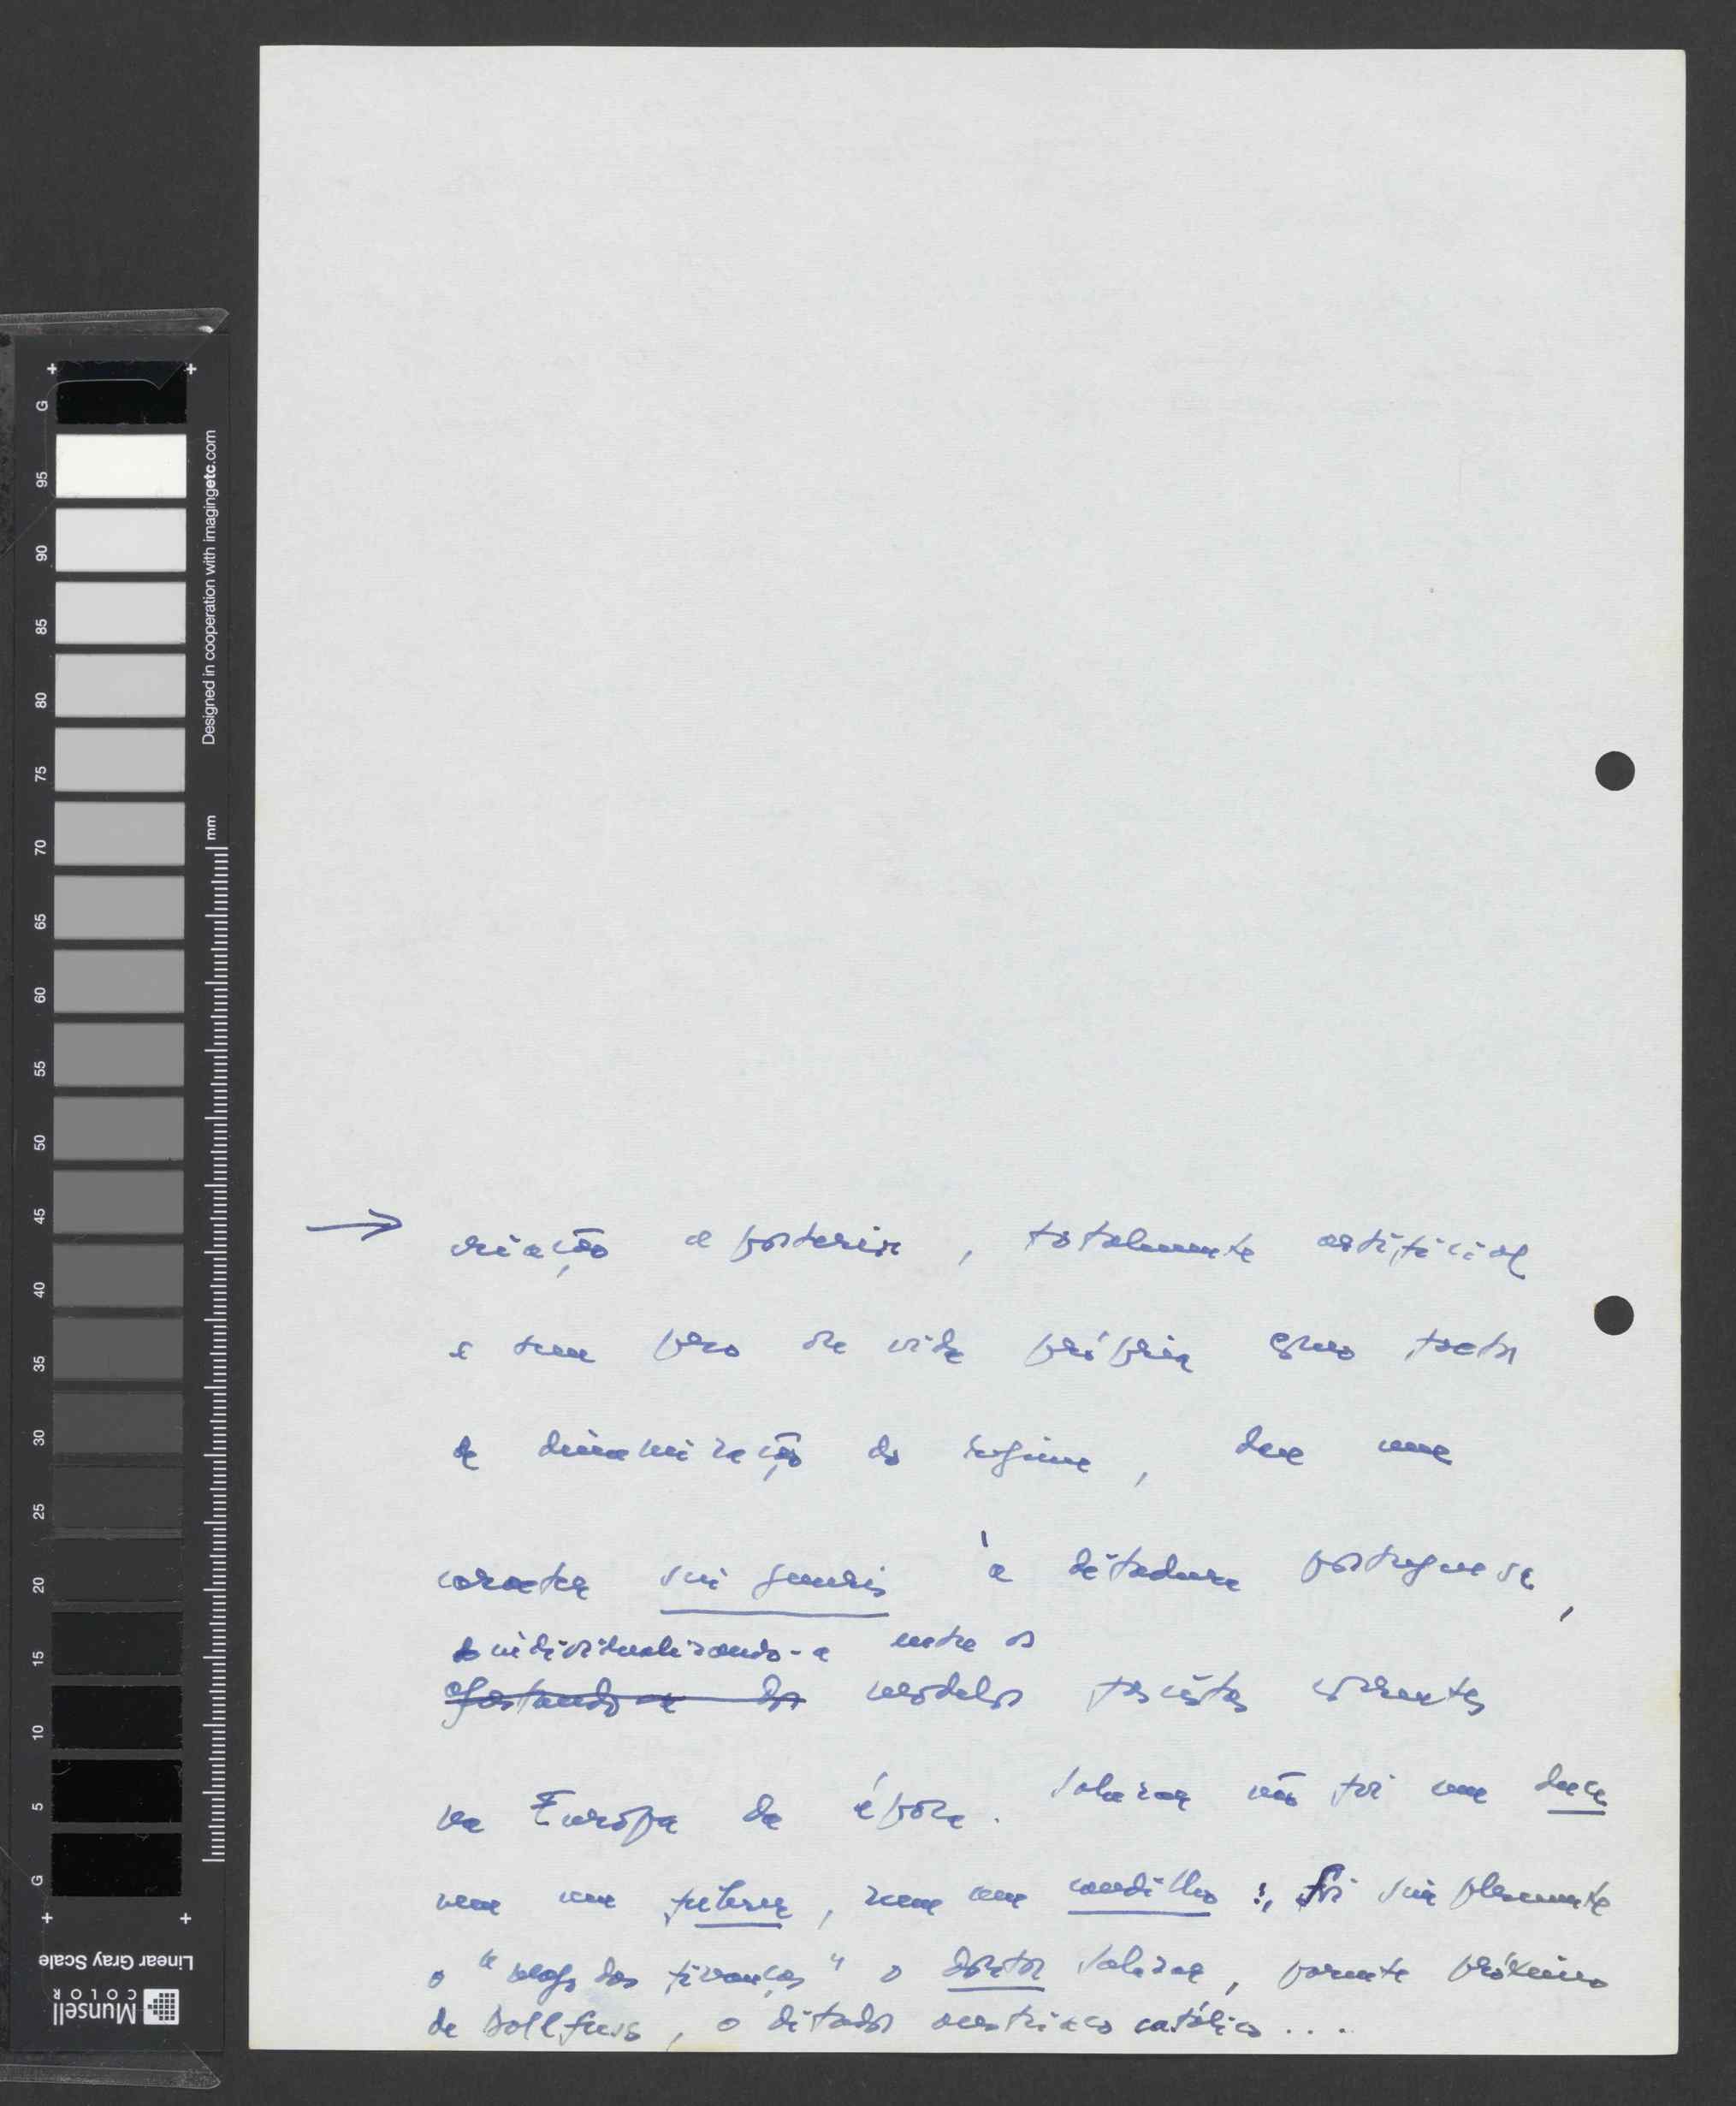 → criação a posteriori, totalmente artificial
e sem peso de vida própria como factor
de dinamização do regime, deu um
caracter sui generis à ditadura portuguesa,
individualizando-a entre os
afastando-a dos modelos fascistas correntes
na Europa da época. Salazar não foi um duce
nem um führer, nem um caudilho: foi simplesmente
o "mago das finanças" o doutor Salazar, parente próximo
de Dollfuss, o ditador austríaco católico...
G
95
90
85
80
75
70
65
60
55
50
45
40
35
30
25
20
15
10
5
G
Designed in cooperation with imagingetc.com
mm
Linear Gray Scale
Munsell
COLOR